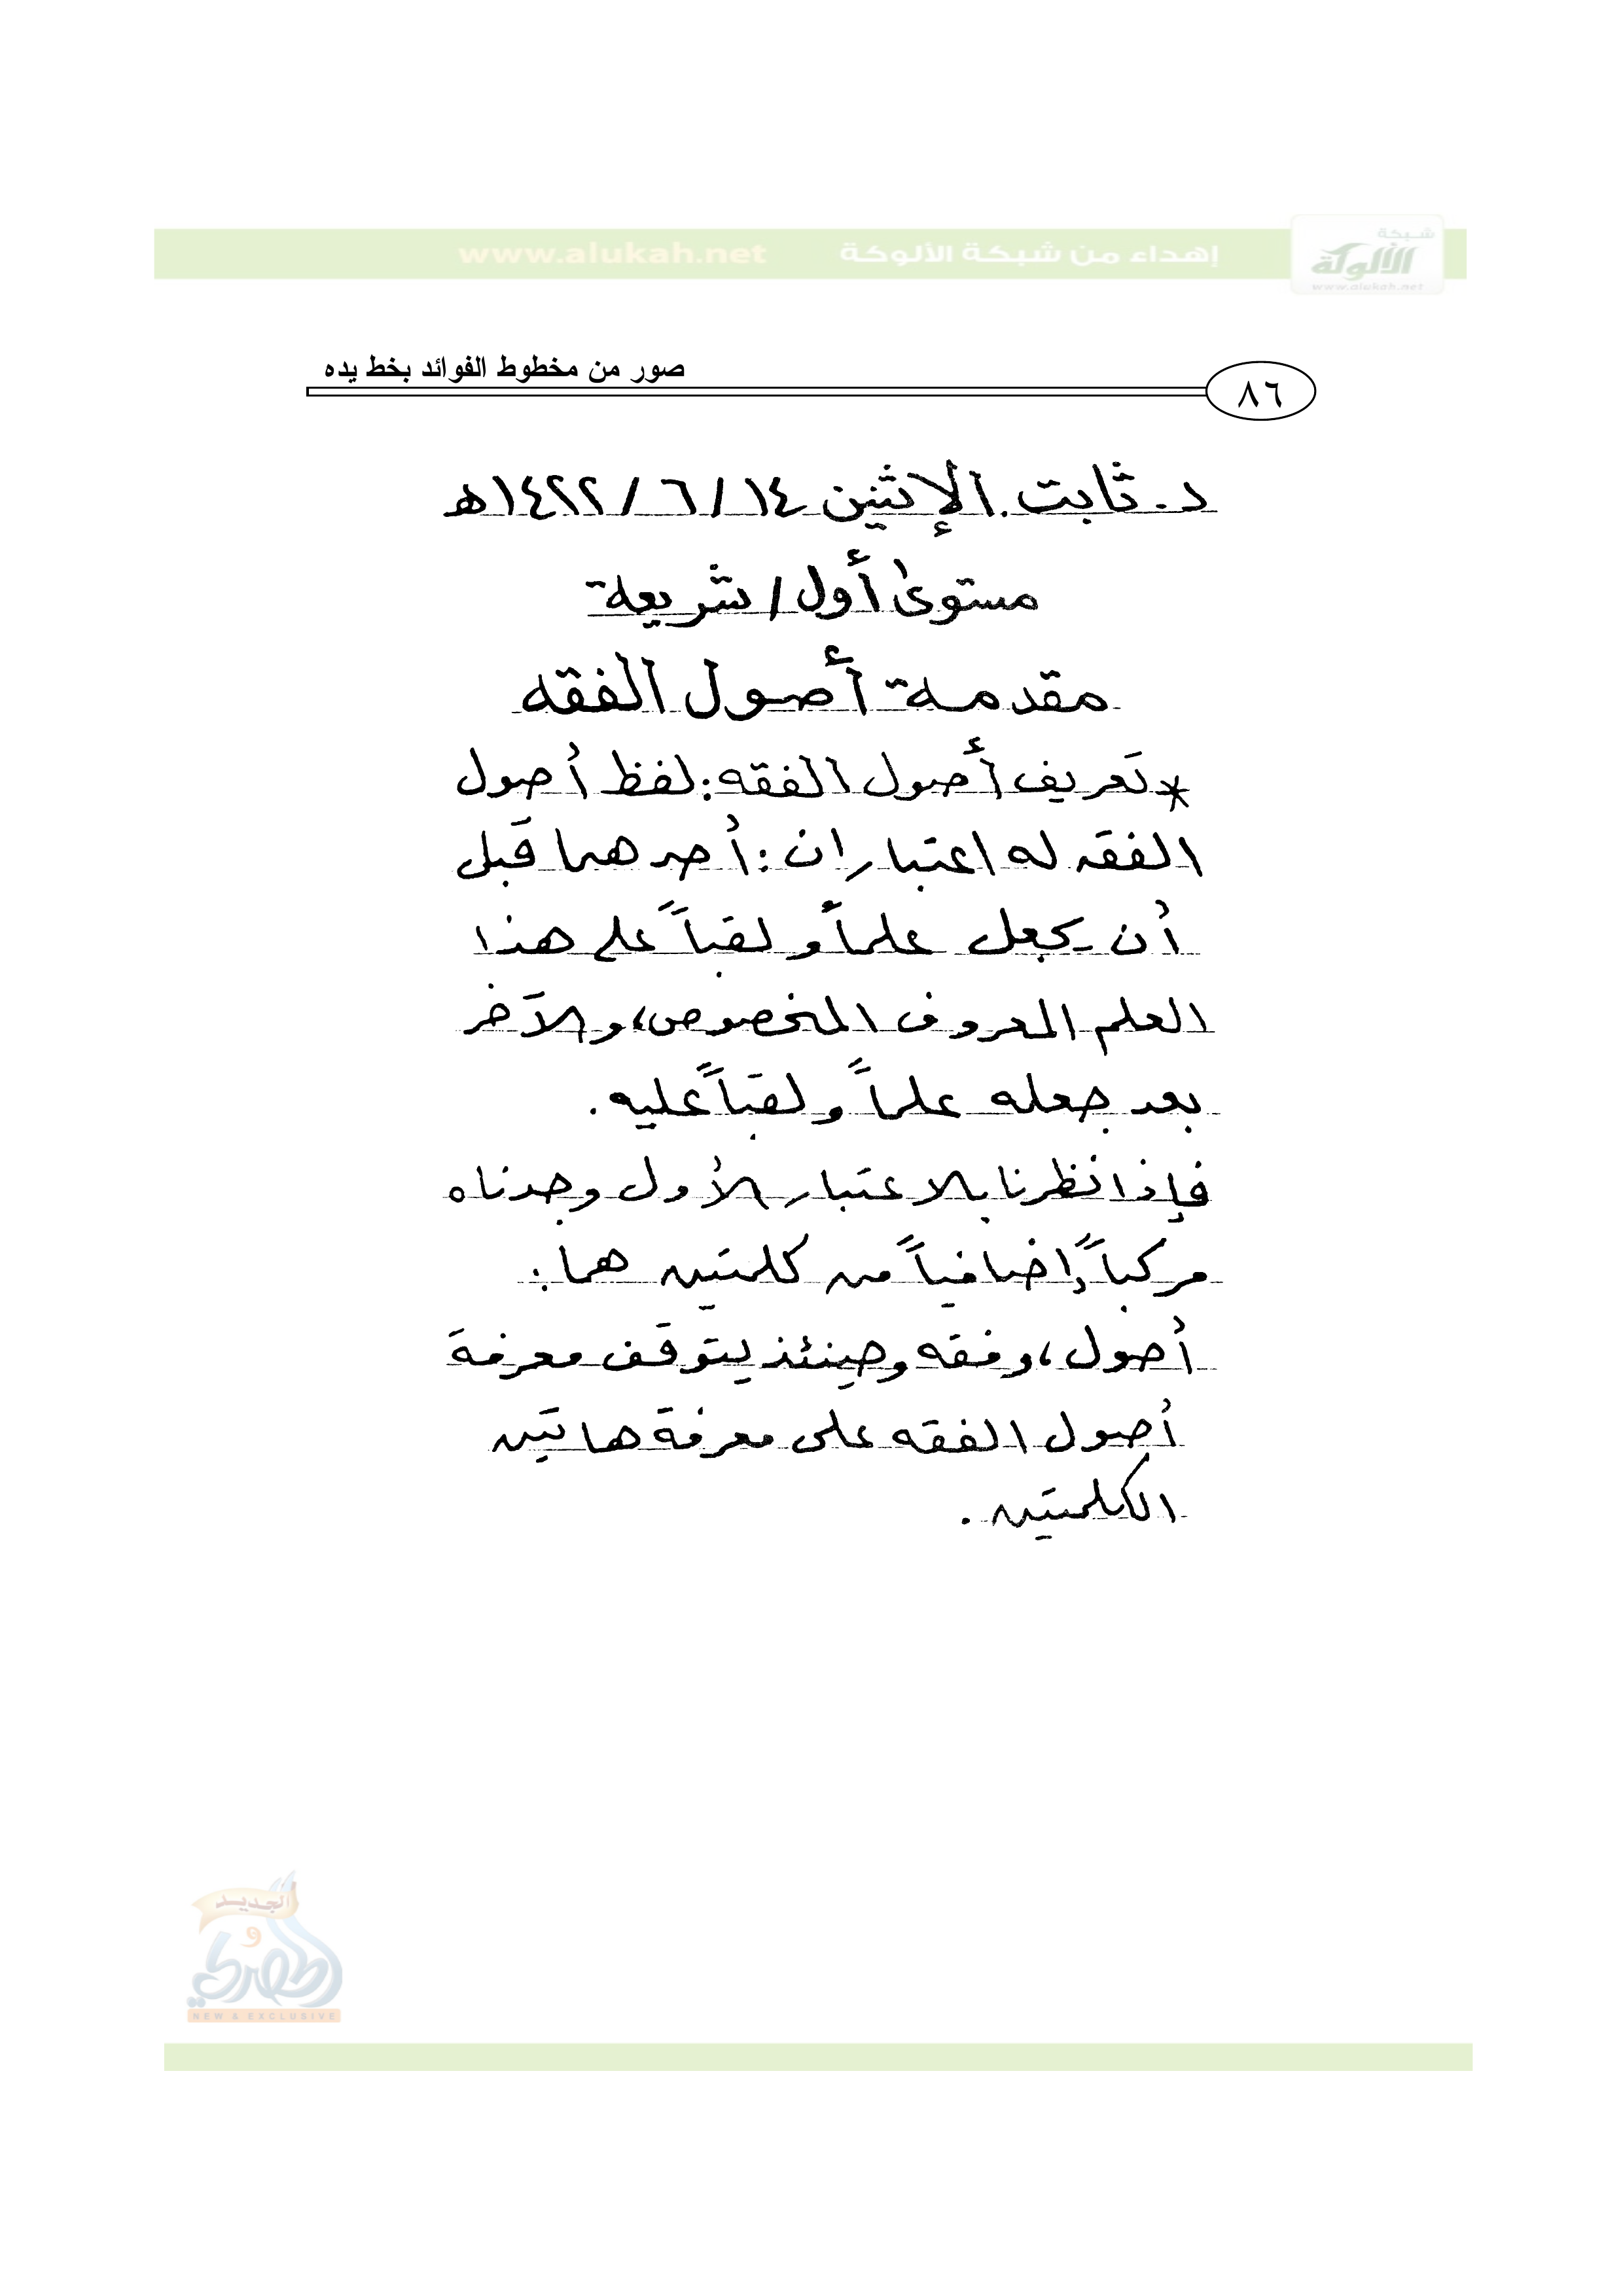 إهداء من شبكة الألوكة www.alukah.net
شبكة
الألوكة
www.alukah.net
صور من مخطوط الفوائد بخط يده
٨٦
د. ثابت. الإثنين ١٤ / ٦ / ١٤٢٢هـ
مستوى أول / شريعة
مقدمة أصول الفقه
* تعريف أصول الفقه: لفظ أصول
الفقه له اعتباران: أحدهما قبل
أن يجعل علماً ولقباً على هذا
العلم المعروف المخصوص، والآخر
بعد جعله علماً ولقباً عليه.
فإذا نظرنا بالاعتبار الأول وجدناه
مركباً إضافياً من كلمتين هما:
أصول، وفقه وحينئذ يتوقف معرفة
أصول الفقه على معرفة هاتين
الكلمتين.
الجديد
و
الحصري
NEW & EXCLUSIVE